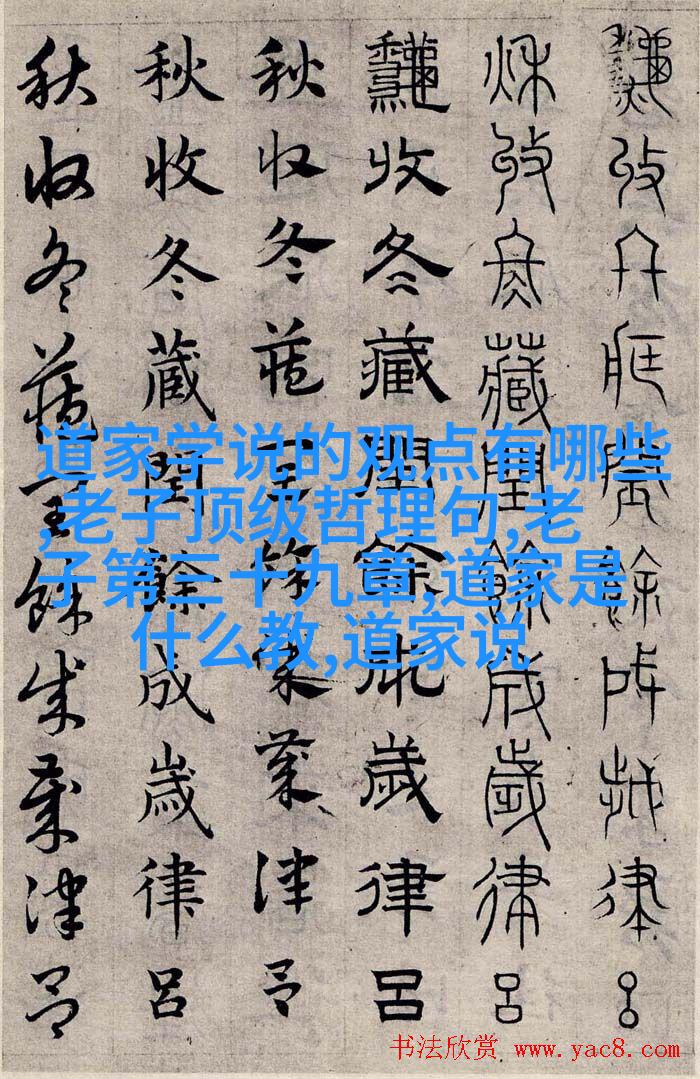 龝收冬藏閏餘成歲律呂
秌收冬藏閏餘成歲律呂
龝收冬藏閏餘成歲律呂
秋收冬藏閏餘成歲律呂
秋收冬蔵閏餘成歳律呂
秋收冬藏閏餘成歲律呂
道家学说的观点有哪些
,老子顶级哲理句,老
子第三十九章,道家是
什么教,道家说
书法欣赏 www.yac8.com